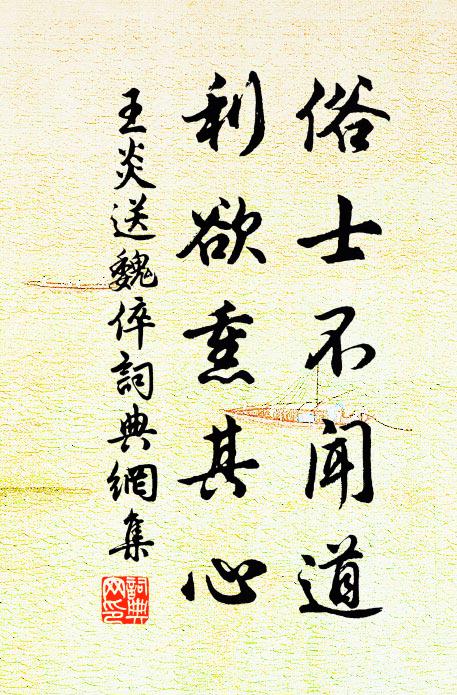 俗士不闻道
利欲熏其心
王炎送魏倅詞典網集
詞典网印